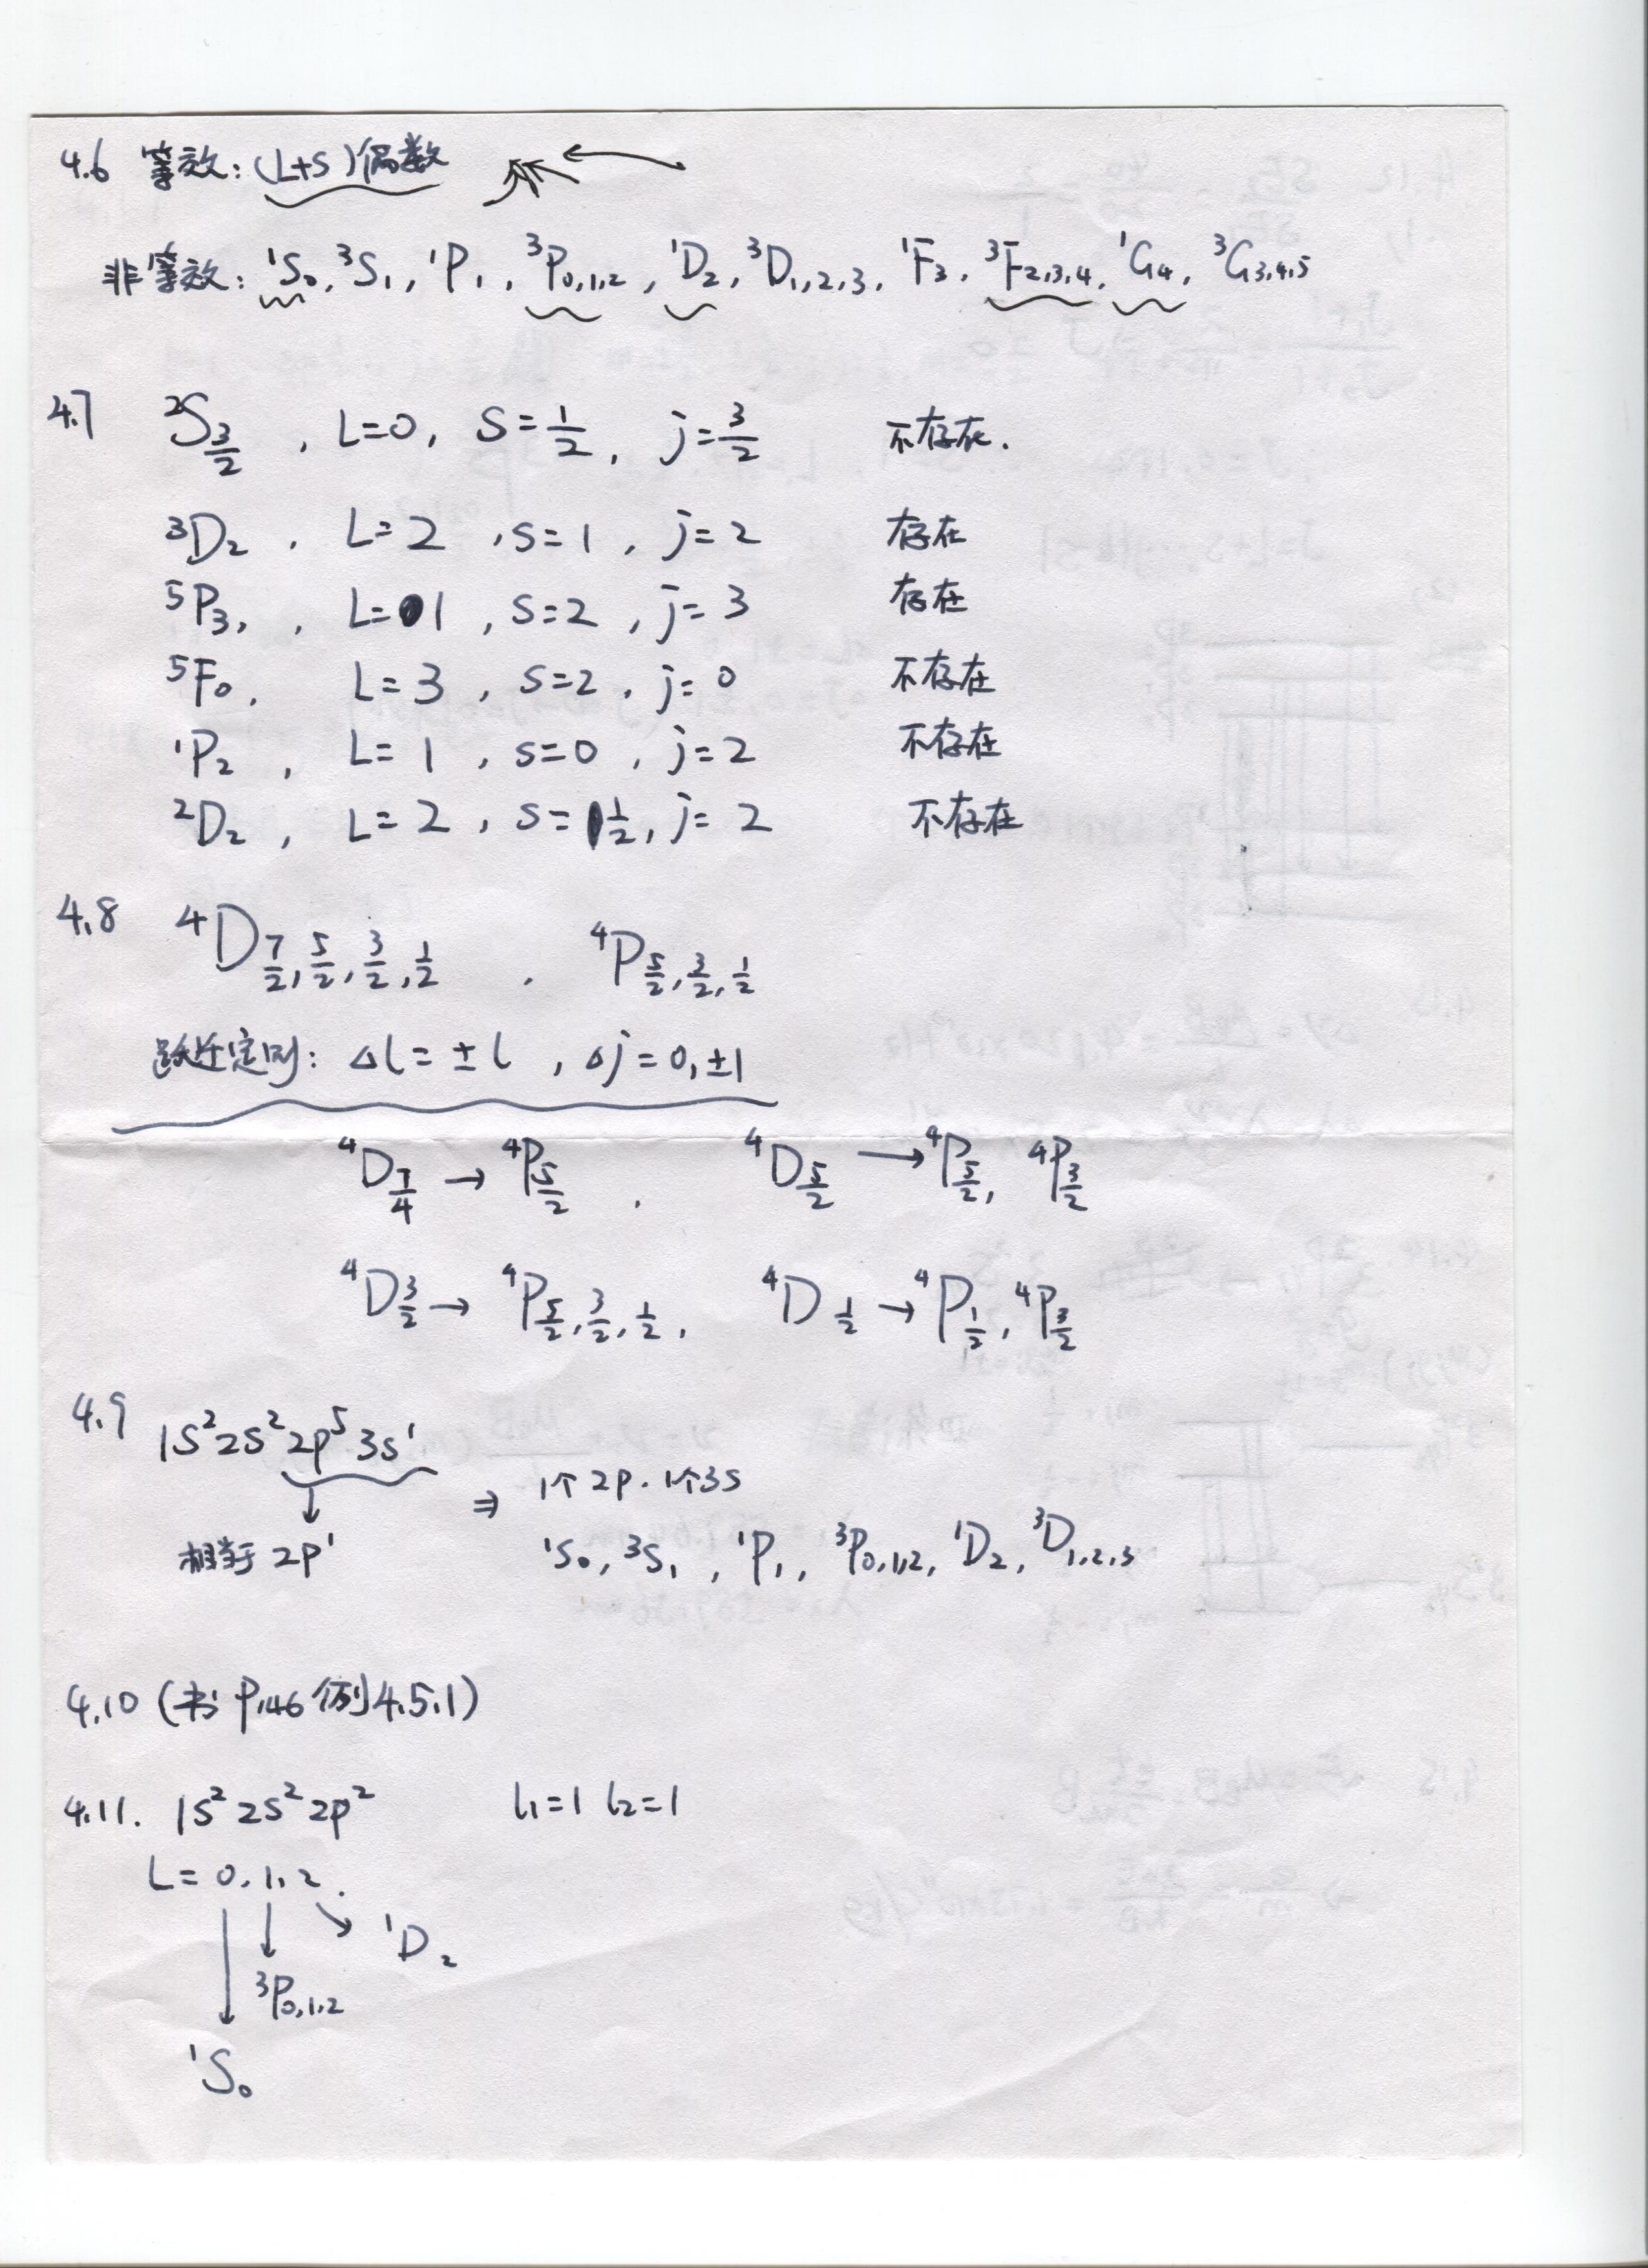 4.6 等效：(L+S)偶数
非等效：¹S₀, ³S₁, ¹P₁, ³P₀,₁,₂, ¹D₂, ³D₁,₂,₃, ¹F₃, ³F₂,₃,₄, ¹G₄, ³G₃,₄,₅
4.7 ²S_{3/2}, L=0, S=1/2, j=3/2 不存在.
³D₂, L=2, S=1, j=2 存在
⁵P₃, , L=1, S=2, j=3 存在
⁵F₀, L=3, S=2, j=0 不存在
¹P₂, L=1, S=0, j=2 不存在
²D₂, L=2, S=1/2, j=2 不存在
4.8 ⁴D_{7/2, 5/2, 3/2, 1/2} , ⁴P_{5/2, 3/2, 1/2}
跃迁定则：Δl=±l, Δj=0,±1
⁴D_{7/4} → ⁴P_{5/2} , ⁴D_{5/2} → ⁴P_{5/2}, ⁴P_{3/2}
⁴D_{3/2} → ⁴P_{5/2, 3/2, 1/2}, ⁴D_{1/2} → ⁴P_{1/2}, ⁴P_{3/2}
4.9 1s²2s²2p⁵3s¹
↓ ⇒ 1个2p. 1个3s
相当于2p¹ ¹S₀, ³S₁, ¹P₁, ³P₀,₁,₂, ¹D₂, ³D₁,₂,₃
4.10 (书P146 例4.5.1)
4.11. 1s²2s²2p² l₁=1 l₂=1
L=0,1,2.
¹D₂
³P₀,₁,₂
¹S₀